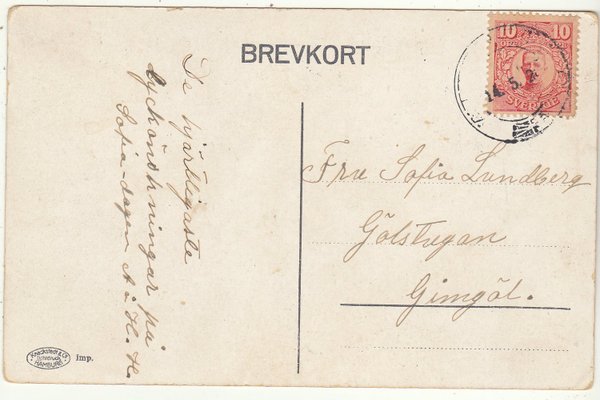 BREVKORT
10 10
SVERIGE
14.5.
De hjärtligaste
lyckönskningar på
Sofia-dagen A. H. H.
Fru Sofia Lundberg
Gölstugan
Gimgöl.
Knackstedt & Co.
HAMBURG
imp.